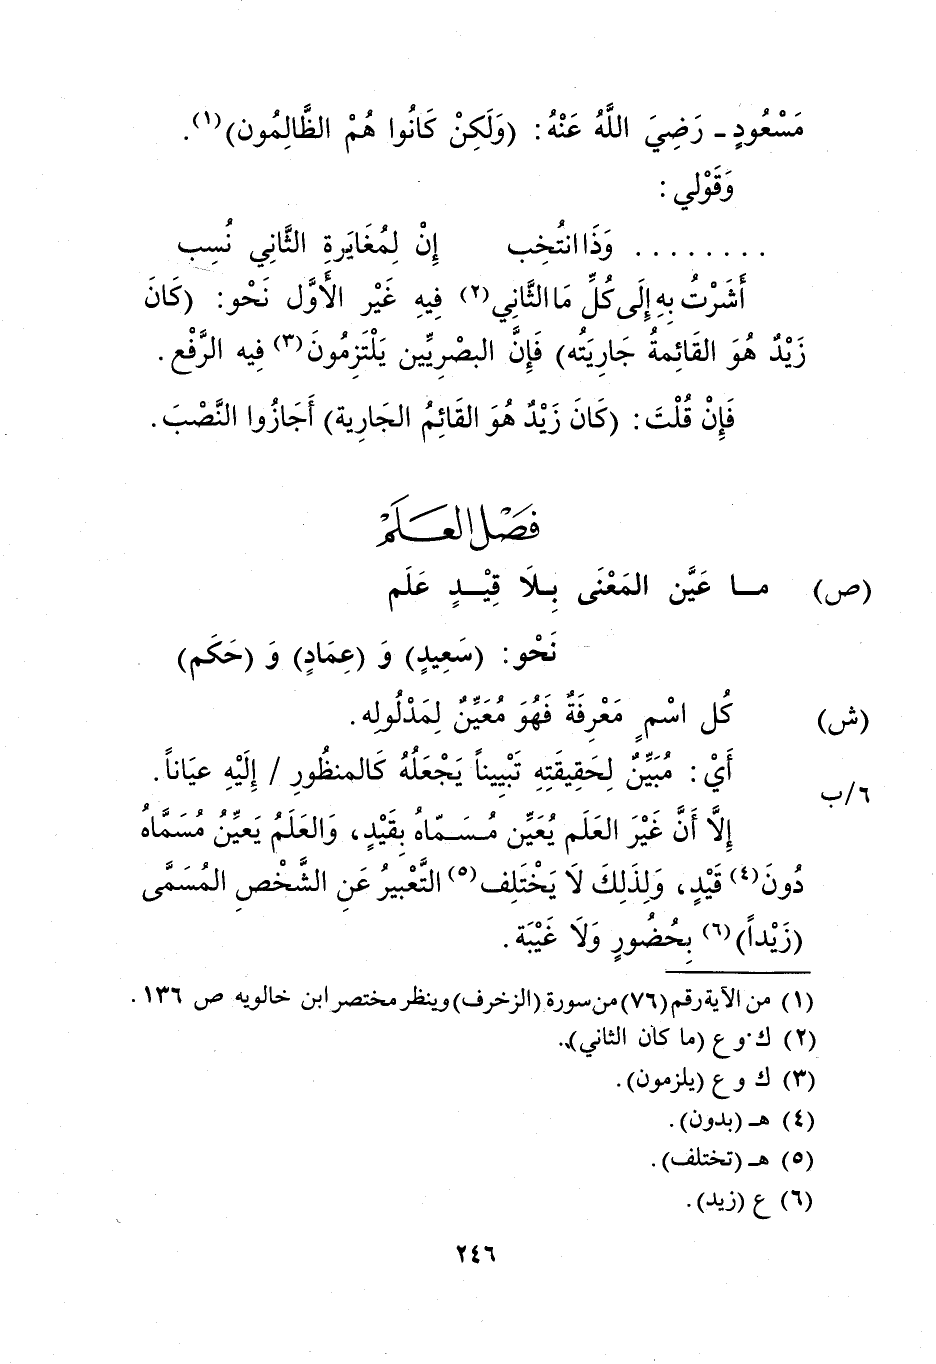 مَسْعُودٍ - رَضِيَ اللَّهُ عَنْهُ: (وَلَكِنْ كَانُوا هُمْ الظَّالِمُون)(١).
وَقَوْلي:
........ وَذَا انتُخِب إِنْ لِمُغَايَرةِ الثَّانِي نُسِب
أَشَرْتُ بِهِ إِلَى كُلِّ مَا الثَّانِي(٢) فِيهِ غَيْر الأَوَّل نَحْو: (كَانَ
زَيْدٌ هُوَ القَائِمةُ جَارِيَتُه) فَإِنَّ البصْرِيِّين يَلْتَزِمُونَ(٣) فِيه الرَّفْع.
فَإِنْ قُلْتَ: (كَانَ زَيْدٌ هُوَ القَائِمُ الجَارِية) أَجَازُوا النَّصْبَ.
فَصْل العَلَمْ
(ص) مـا عَيَّن المَعْنَى بِـلَا قَيْـدٍ عَلَم
نَحْو: (سَعِيدٍ) وَ (عِمَادٍ) وَ (حَكَم)
(ش) كُل اسْمٍ مَعْرِفَةٌ فَهُوَ مُعَيِّنٌ لِمَدْلُولِه.
أَيْ: مُبَيِّنٌ لِحَقِيقَتِهِ تَبْيِيناً يَجْعَلُهُ كَالمنظُورِ / إِلَيْهِ عيَاناً.
٦/ب
إِلَّا أَنَّ غَيْرَ العَلَم يُعَيِّن مُسَـمّاهُ بِقَيْدٍ، وَالعَلَمُ يَعيِّنُ مُسَمَّاهُ
دُونَ(٤) قَيْدٍ، وَلِذَلِكَ لَا يَخْتَلِف(٥) التَّعْبِيرُ عَنِ الشَّخْصِ المُسَمَّى
(زَيْداً)(٦) بِحُضُورٍ وَلَا غَيْبَة.
(١) من الآية رقم (٧٦) من سورة (الزخرف) وينظر مختصر ابن خالويه ص ١٣٦.
(٢) ك و ع (ما كان الثاني).
(٣) ك و ع (يلزمون).
(٤) هـ (بدون).
(٥) هـ (تختلف).
(٦) ع (زيد).
٢٤٦